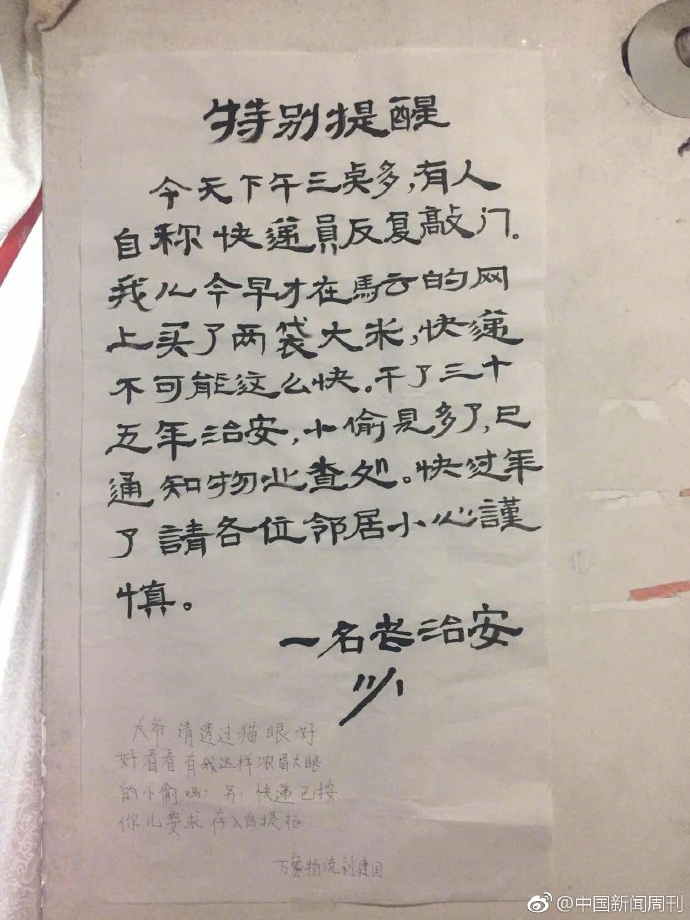 特别提醒
今天下午三点多,有人
自称快递員反复敲门。
我儿今早才在馬云的网
上买了两袋大米,快递
不可能这么快。干了三十
五年治安,小偷見多了,已
通知物业查处。快过年
了請各位邻居小心謹
慎。
一名老治安
大爷,请透过猫眼好
好看看,有我这样浓眉大眼
的小偷吗;另:快递已按
你儿要求存入自提柜
万象物流刘建国
@中国新闻周刊